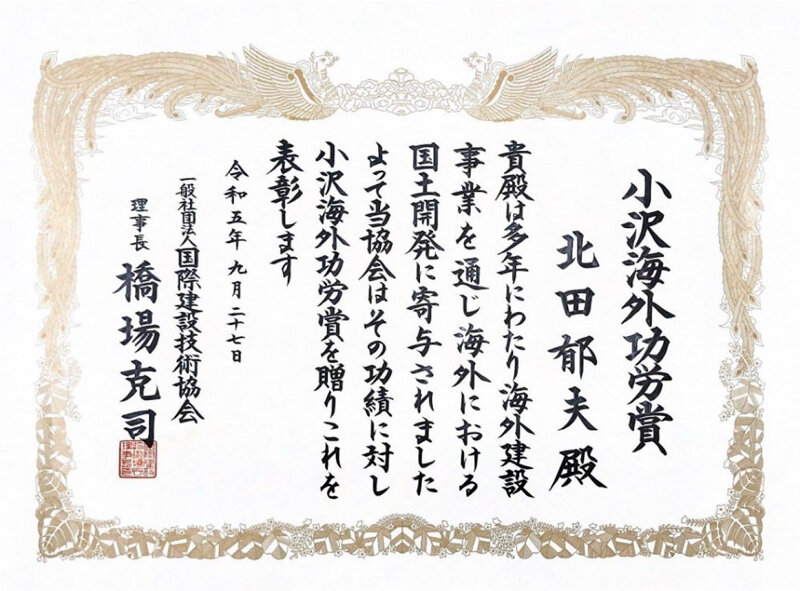 小沢海外功労賞
北田郁夫殿
貴殿は多年にわたり海外建設
事業を通じ海外における
国土開発に寄与されました
よって当協会はその功績に対し
小沢海外功労賞を贈りこれを
表彰します
令和五年九月二十七日
一般社団法人国際建設技術協会
理事長 橋場克司